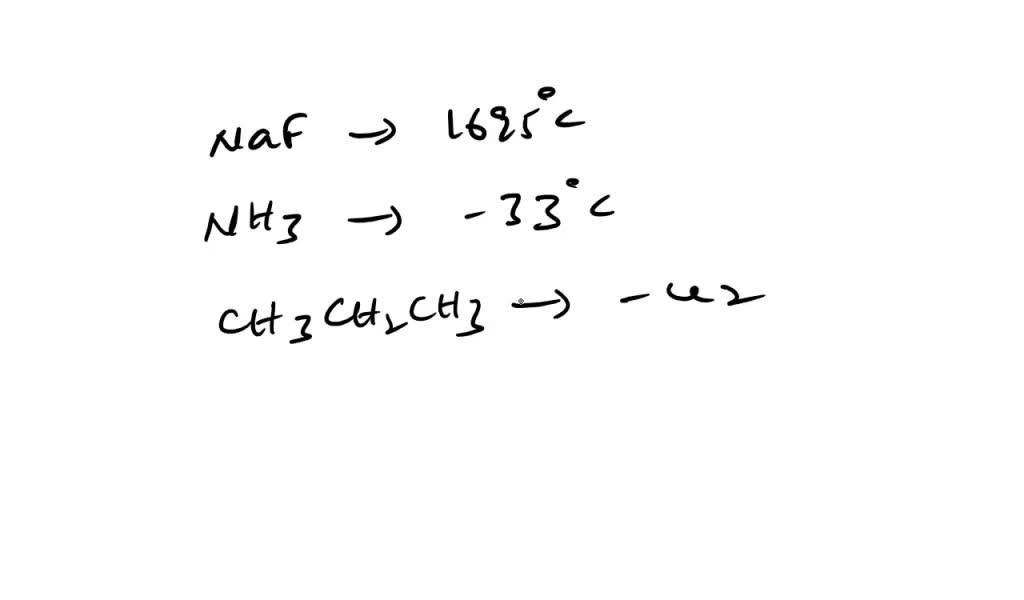 NaF → 1695°C
NH3 → -33°C
CH3CH2CH3 → -42